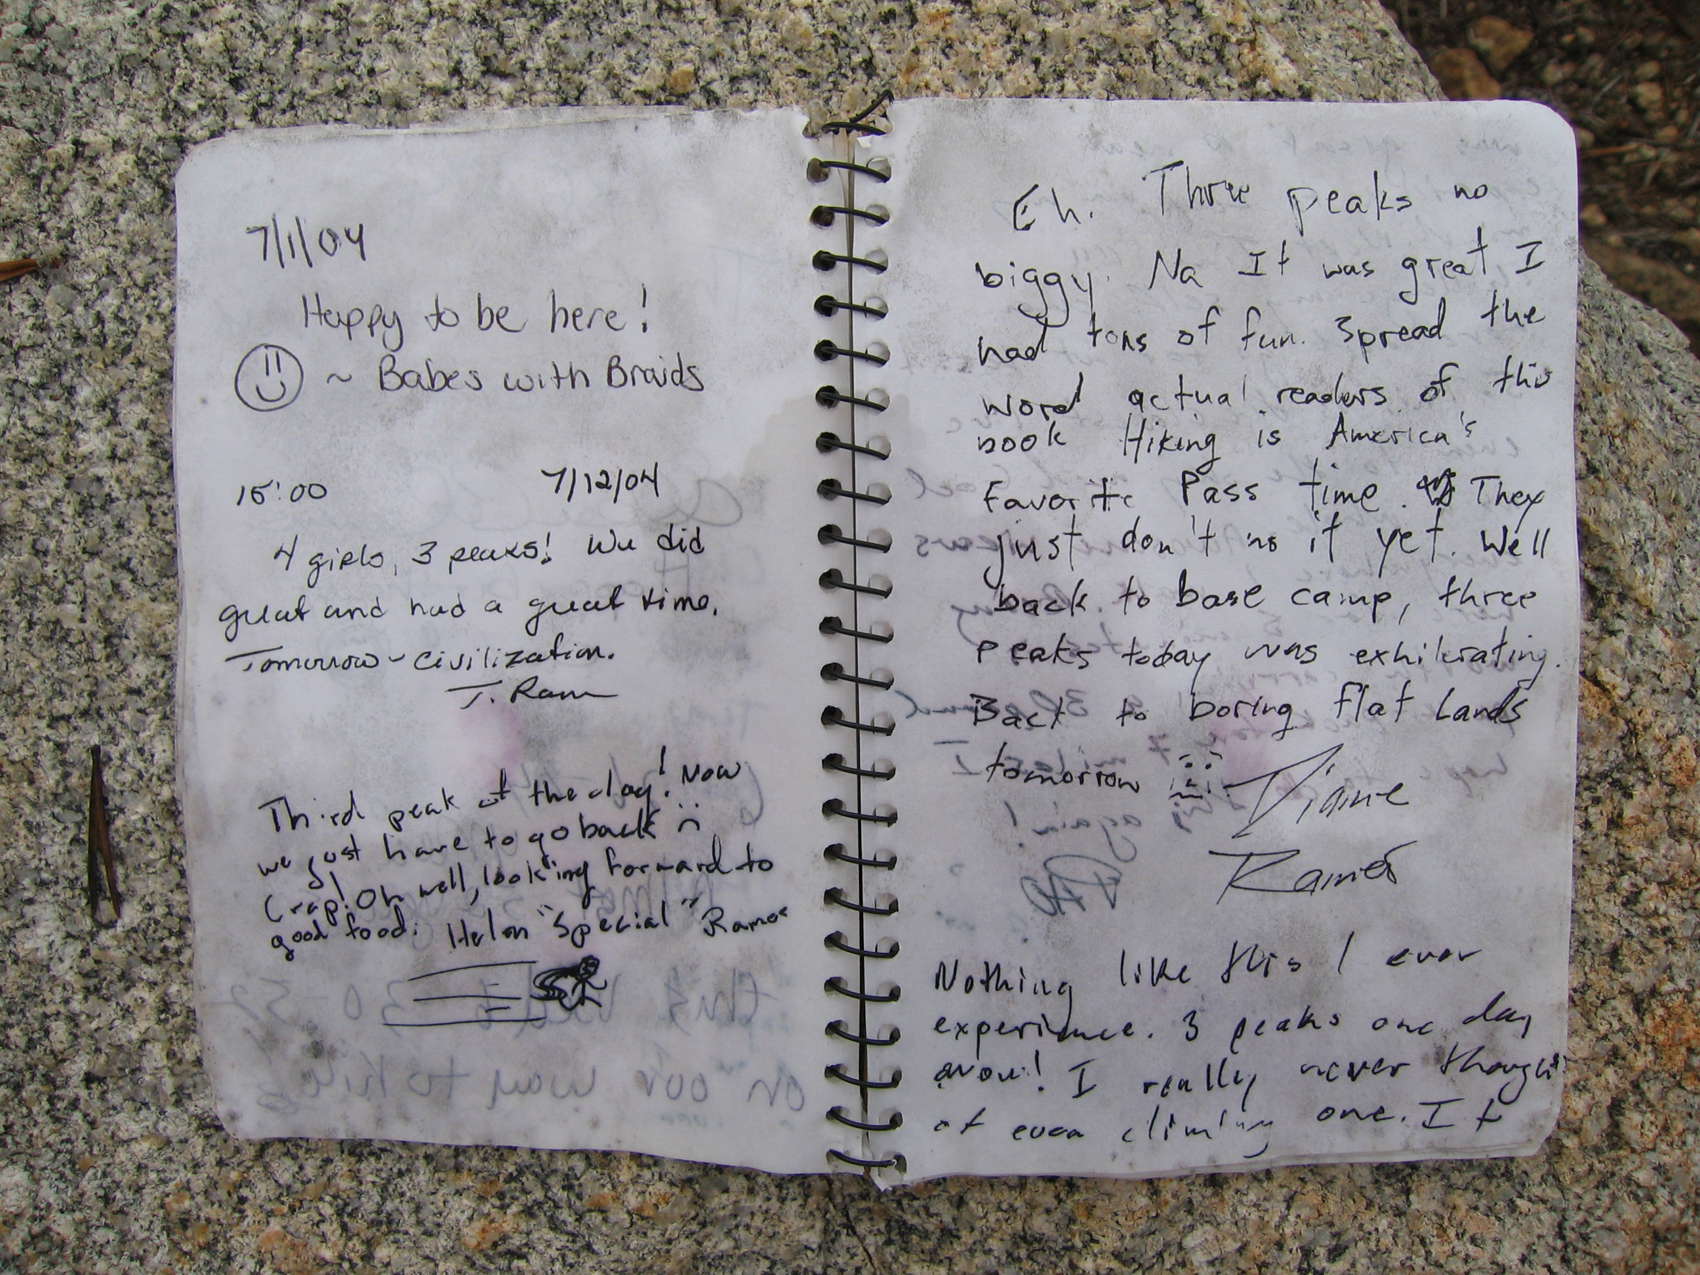 7/1/04
Happy to be here!
~ Babes with Braids
15:00 7/12/04
4 girls, 3 peaks! We did
great and had a great time.
Tomorrow - civilization.
T. Ram
Third peak of the day! Now
we just have to go back
Crap! Oh well, looking forward to
good food. Helen "Special" Ramos
Eh. Three peaks no
biggy. Na It was great, I
had tons of fun. Spread the
word actual readers of this
book Hiking is America's
favorite Pass time. They
just don't no it yet. Well
back to base camp, three
peaks today was exhilirating.
Back to boring flat lands
tomorrow
Diane
Ramos
Nothing like this I ever
experience. 3 peaks one day
wow! I really never thought
of even climing one. It